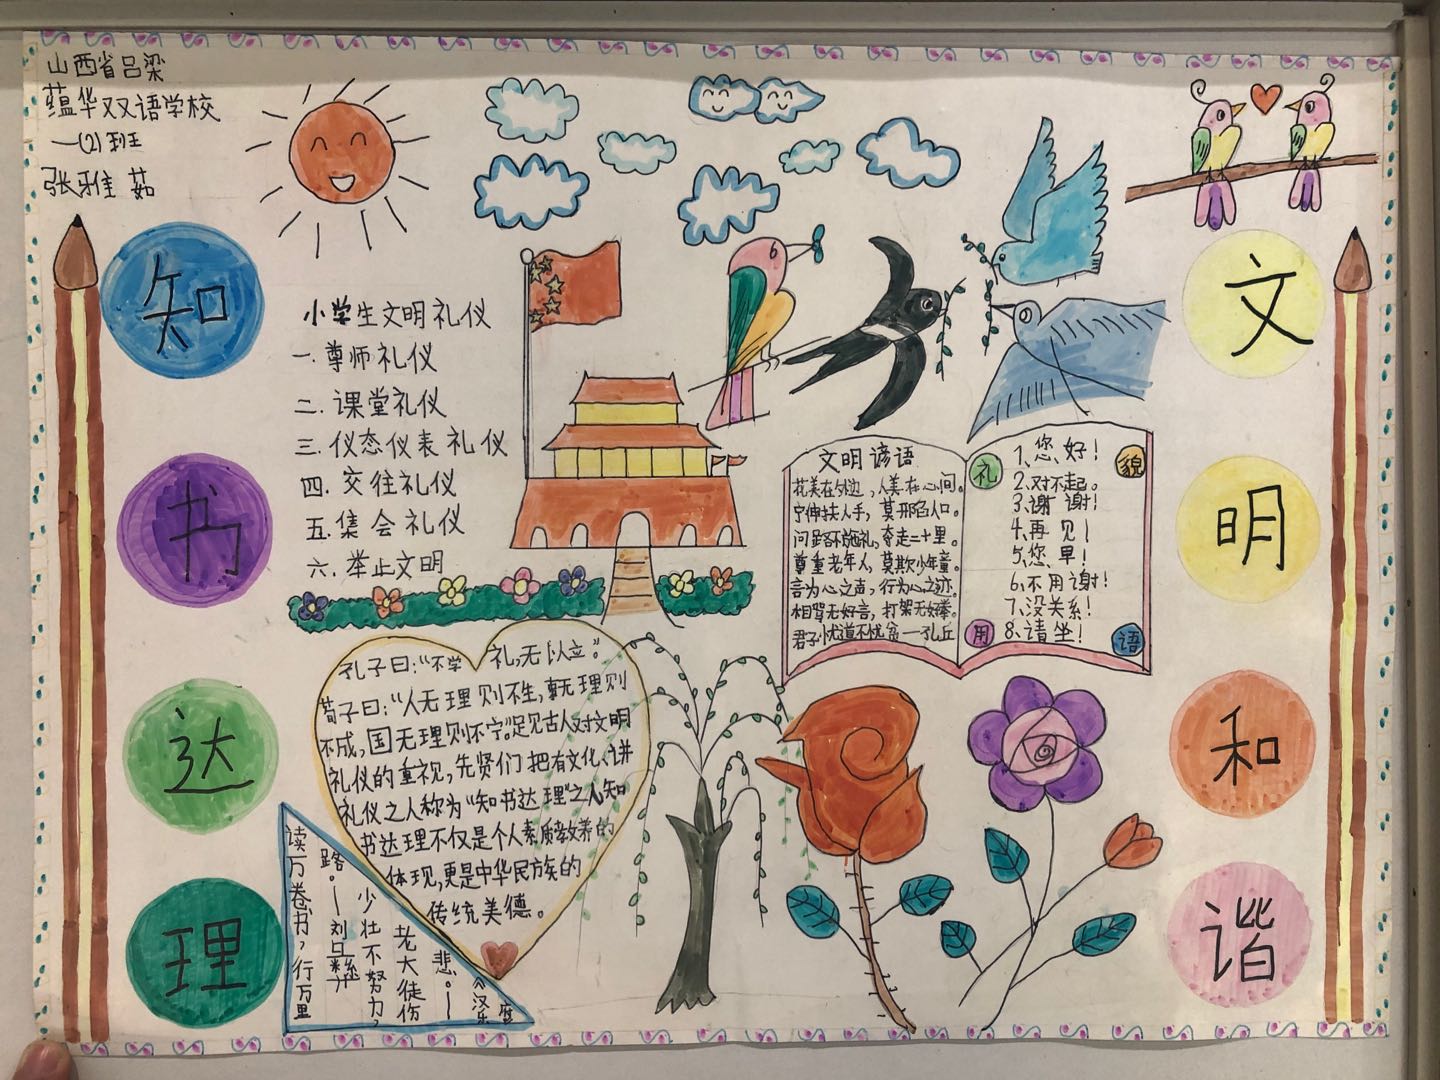 山西省吕梁
蕴华双语学校
一(2)班
张雅茹
知
书
达
理
小学生文明礼仪
一.尊师礼仪
二.课堂礼仪
三.仪态仪表礼仪
四.交往礼仪
五.集会礼仪
六.举止文明
文明谚语
花美在外边，人美在心间。
宁伸扶人手，莫开陷人口。
问路不施礼，多走二十里。
尊重老年人，莫欺少年童。
言为心之声，行为心之迹。
相骂无好言，打架无好拳。
君子忧道不忧贫一孔丘
礼
貌
用
语
1、您好！
2.对不起。
3、谢谢！
4、再见！
5、您早！
6、不用谢！
7、没关系！
8、请坐！
孔子曰：“不学礼，无以立。”
荀子曰：“人无理则不生，事无理则
不成，国无理则不宁。”足见古人对文明
礼仪的重视，先贤们把有文化、讲
礼仪之人称为“知书达理”之人知
书达理不仅是个人素质教养的
体现，更是中华民族的
传统美德。
读万卷书，行万里
路。一刘
少壮不努力，
老大徒伤
悲。一
《汉乐
文
明
和
谐